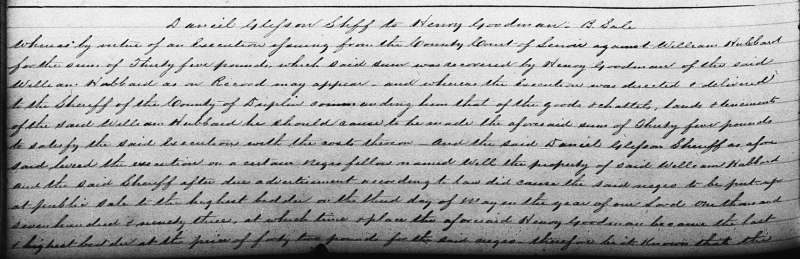 Daniel Glisson Shff to Henry Goodman - B. Sale
Whereas by virtue of an Execution issuing from the County Court of Lenoir against William Hubbard
for the sum of Thirty five pounds, which said sum was recovered by Henry Goodman of the said
William Hubbard as on Record may appear - and whereas the Execution was directed & delivered
to the Sheriff of the County of Duplin commanding him that of the goods & chattels, lands & tenements
of the said William Hubbard he should cause to be made the aforesaid sum of Thirty five pounds
to satisfy the said Execution with the costs thereon - And the said Daniel Glisson Sheriff as afore
said levied the execution on a certain negro fellow named Will the property of said William Hubbard
and the said Sheriff after due advertisement according to law did cause the said negro to be put up
at public sale to the highest bidder on the third day of May in the year of our Lord One thousand
seven hundred & ninety three, at which time & place the aforesaid Henry Goodman became the last
& highest bidder at the price of forty two pounds for the said negro therefore be it Known that the